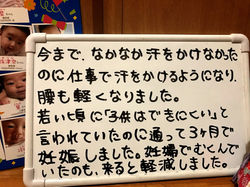 今まで、なかなか汗をかけなかった
のに仕事で汗をかけるようになり、
腰も軽くなりました。
若い頃に「子供はできにくい」と
言われていたのに通って3ヶ月で
妊娠しました。妊婦でむくんで
いたのも、来ると軽減しました。